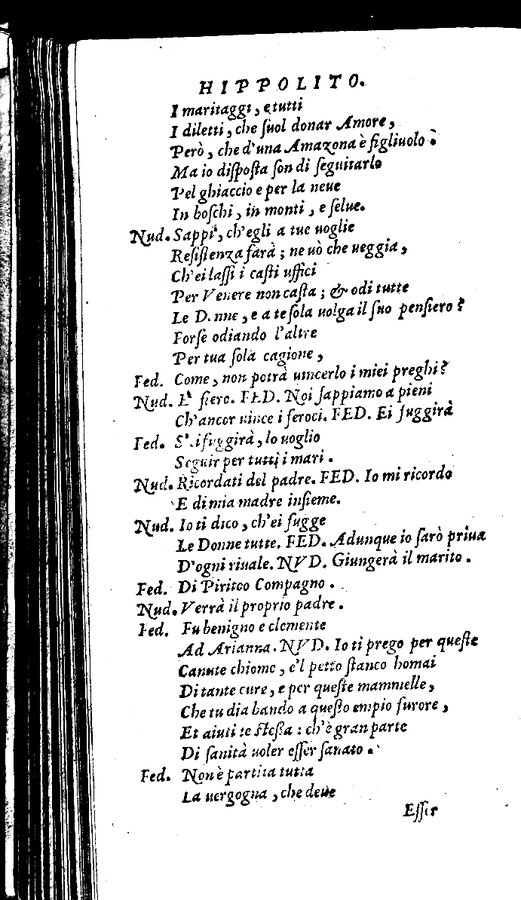 HIPPOLITO.
I maritaggi, e tutti
I diletti, che ſuol donar Amore,
Però, che d'una Amazona è figliuolo?
Ma io diſpoſta ſon di ſeguitarlo
Pel ghiaccio e per la neue
In boſchi, in monti, e ſelue.
Nud. Sappi, ch'egli a tue uoglie
Reſiſtenza farà; ne uò che ueggia,
Ch'ei laſſi i caſti uffici
Per Venere non caſta; & odi tutte
Le Donne, e a te ſola uolga il ſuo penſiero?
Forſe odiando l'altre
Per tua ſola cagione,
Fed. Come, non potrà uincerlo i miei preghi?
Nud. E' fiero. FED. Noi ſappiamo a pieni
Ch'ancor uince i feroci. FED. Ei fuggirà
Fed. S'ei fuggirà, lo uoglio
Seguir per tutti i mari.
Nud. Ricordati del padre. FED. Io mi ricordo
E di mia madre inſieme.
Nud. Io ti dico, ch'ei fugge
Le Donne tutte. FED. Adunque io ſarò priua
D'ogni riuale. NVD. Giungerà il marito.
Fed. Di Piritoo Compagno.
Nud. Verrà il proprio padre.
Fed. Fu benigno e clemente
Ad Arianna. NVD. Io ti prego per queſte
Canute chiome, e'l petto ſtanco homai
Di tante cure, e per queſte mammelle,
Che tu dia bando a queſto empio furore,
Et aiuti te ſteſſa: ch'è gran parte
Di ſanità uoler eſſer ſanato.
Fed. Non è partita tutta
La uergogna, che deue
Eſſer